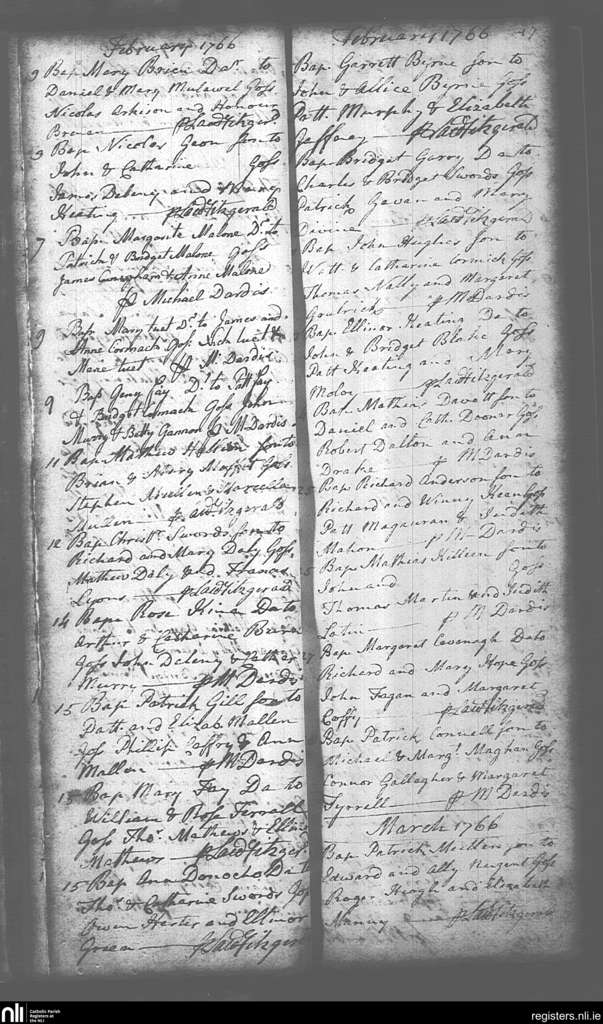 February 1766
9 Bap. Mary Brien Dar. to
Daniel & Mary Mulawel Goss.
Nicolas and Honour
Brenan p. LadFitzger.
3 Bap. Nicolas Geon son to
John & Catharine Goss.
James Delany and
Keating p. LadFitzgerald
7 Bap. Margarite Malone Dr. to
Patrick & Bridget Malone Goss
James & Anne Malone
p Michael Dardis
9 Bap. Mary tuet Dr. to James and
Anne Cormack Goss. Nich tuet &
Mane tuet p M. Dardis
9 Bap Geny Fay Dr. to Patt Fay
& Bridget Cormack Goss John
Murry & Betty Gannon p M. Dardis
11 Bap. Mathew son to
Brian & Goss.
Stephen
p. LadFitzgerald
12 Bap. Christr. Swords son to
Richard and Mary Daly Goss.
Mathew Daly & Frances
Lyons p. LadFitzgerald
14 Bap. Rose Da to
Arthur & Catharine
Goss John Deleny &
Murry p M Dardis
15 Bap Patrick Gill son to
Patt. and Elizab Mallen
Goss Phillip Caffry & Ann
Mallon p M Dardis
15 Bap Mary Fay Da to
William & Rose Ferrall
Goss Thos. Mathews &
Mathews p LadFitzger.
15 Bap Ann Donocho Da to
Thos. & Catharne Swords Goss
Owen and Ellinor
p LadFitzgera
February 1766 17
Bap. Garrett Byrne son to
John & Allice Byrne Goss
Patt. Murphy & Elizabeth
Gaffney p LadFitzgerald
Bap. Bridget Garry Da to
Charles & Bridget Swords Goss
Patrick Gavan and Mary
Devine p LadFitzgerald
Bap John Hughes son to
Watt. & Catharine Cormick Goss
Thomas Nally and Margaret
p M Dardis
Bap. Ellinor Keating Da to
John & Bridget Blake Goss
Patt Keating and Mary
Moloy p LadFitzgerald
Bap. Mathew son to
Daniel and Cath. Goss.
Robert Dalton and Ann
Drake p M Dardis
Bap Richard Anderson son to
Richard and Winny Kean Goss
Patt Magauran & Judith
Mahon p M Dardis
Bap Mathias Killeen son to
John and Goss
Thomas Martin and Judith
p M Dardis
Bap Margaret Cavanagh Da to
Richard and Mary Hope Goss
John Fagan and Margaret
Coffy p LadFitzgerald
Bap Patrick Connell son to
Michael & Margt. Maghan Goss
Connor Gallagher & Margaret
Tyrrell p M Dardis
March 1766
Bap Patrick son to
Edward and Ally Nugent Goss
Roger and Elizabeth
p LadFitzgerald
nli Catholic Parish
Registers at
the NLI
registers.nli.ie